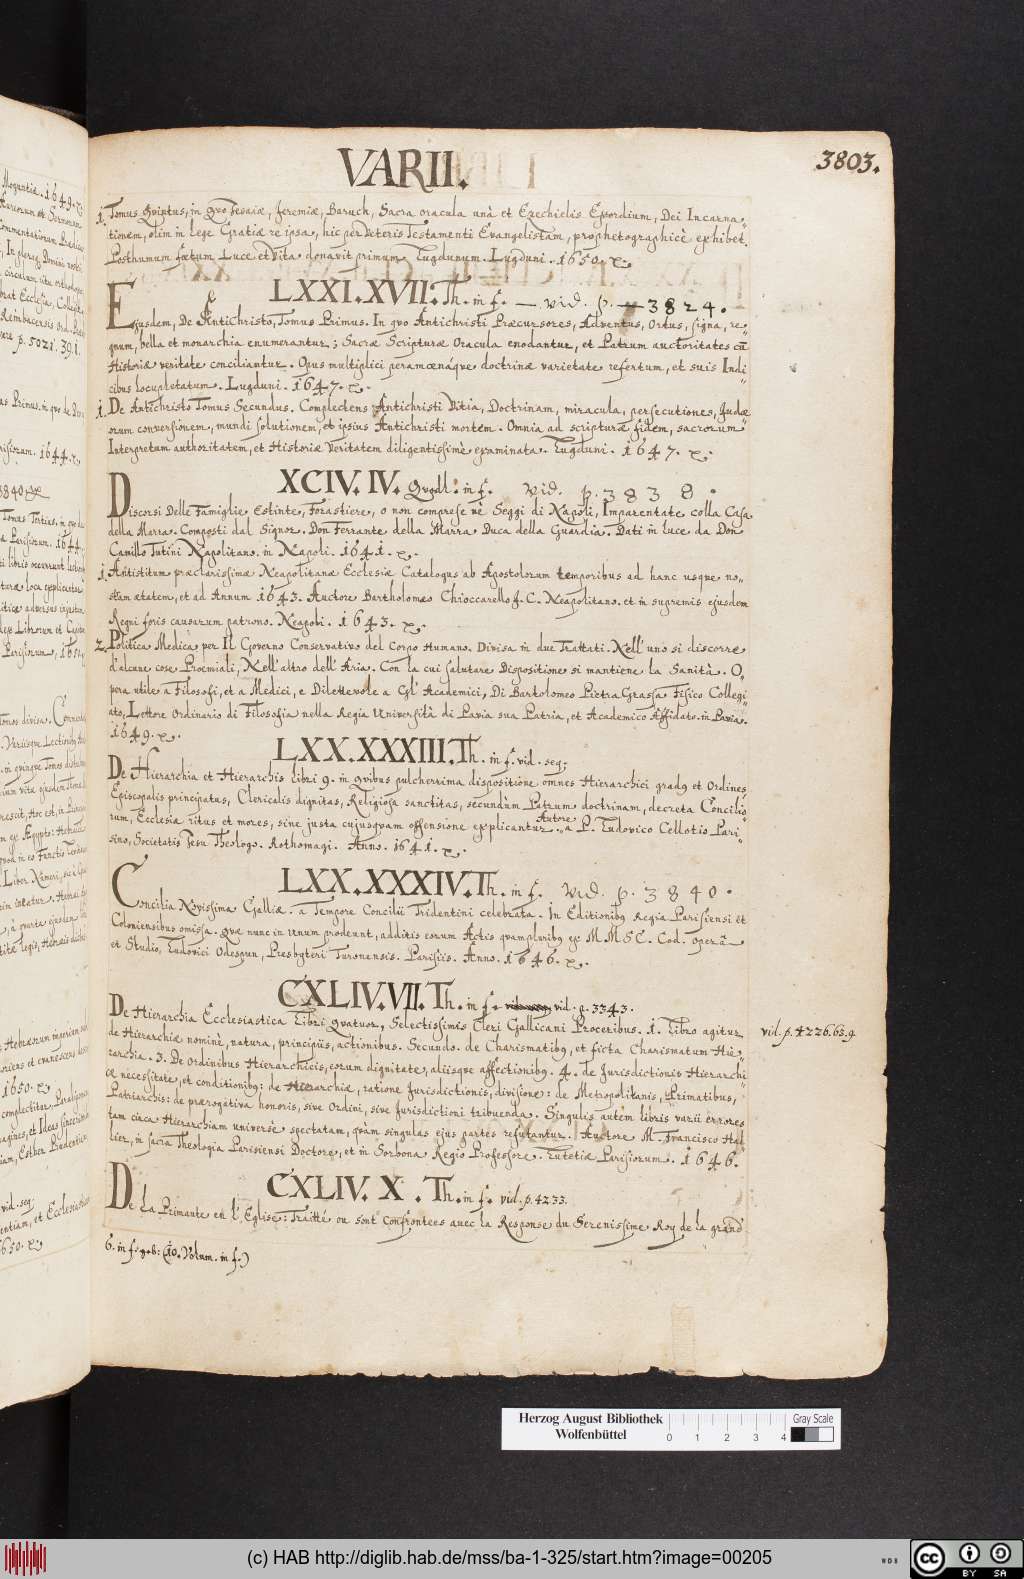 VARII.
3803.
1. Tomus Quintus, in quo Jesaiæ, Jeremiæ, Baruch, Sacra oracula unà et Ezechielis Exordium, Dei Incarna=
tionem, olim in lege Gratiæ re ipsa, hic per Veteris Testamenti Evangelistam, prophetographicè exhibet.
Posthumum fœtum Luce et Vita donavit primum Lugdunum. Lugduni. 1650.
LXXI. XVII. Th. in f. — vid. p. 3824.
Ejusdem, De Antichristo, Tomus Primus. In quo Antichristi Præcursores, Adventus, Ortus, signa, re=
gnum, bella et monarchia enumerantur; Sacræ Scripturæ Oracula enodantur, et Patrum auctoritates cū
Historiæ veritate conciliantur. Opus multiplici peramœnáque doctrinæ varietate refertum, et suis Indi=
cibus locupletatum. Lugduni. 1647.
1. De Antichristo Tomus Secundus. Complectens Antichristi Vitia, Doctrinam, miracula, persecutiones, Judæ=
orum conversionem, mundi solutionem, et ipsius Antichristi mortem. Omnia ad scripturæ fidem, sacrorum
Interpretum authoritatem, et Historiæ Veritatem diligentissimè examinata. Lugduni. 1647.
XCIV. IV. Quodl. in f. vid. p. 3838.
Discorsi Delle Famiglie Estinte, Forastiere, o non comprese nè Seggi di Napoli, Imparentate colla Casa
della Marra. Composti dal Signor. Don Ferrante della Marra Duca della Guardia. Dati in luce da Don
Camillo Tutini Napolitano. in Napoli. 1641.
1. Antistitum præclarissimæ Neapolitanæ Ecclesiæ Catalogus ab Apostolorum temporibus ad hanc usque no=
stram ætatem, et ad Annum 1643. Auctore Bartholomæo Chioccarello J. C. Neapolitano. et in supremis ejusdem
Regni foris causarum patrono. Neapoli. 1643.
2. Politica Medica per Il Governo Conservativo del Corpo Humano. Divisa in due Trattati. Nell' uno si discorre
d'alcune cose Proemiali, Nell' altro dell' Aria. Con la cui salutare Dispositione si mantiene la Sanità. O=
pera utile a Filosofi, et a Medici, e Dilettevole a Gl' Academici, Di Bartolomeo Pietra Grassa Fisico Collegi=
ato, Lettore Ordinario di Filosofia nella Regia Università di Pavia sua Patria, et Academico Affidato. in Pavia.
1649.
LXX. XXXIII. Th. in f. vid. seq.
De Hierarchia et Hierarchis libri 9. in quibus pulcherrima dispositione omnes Hierarchici gradus et Ordines,
Episcopalis principatus, Clericalis dignitas, Religiosa sanctitas, secundum Patrum doctrinam, decreta Concilio=
rum, Ecclesiæ ritus et mores, sine justa cujusquam offensione explicantur. Autore a P. Ludovico Cellotio Pari=
sino, Societatis Jesu Theologo. Rothomagi. Anno. 1641.
LXX. XXXIV. Th. in f. vid. p. 3840.
Concilia Novissima Galliæ. a Tempore Concilii Tridentini celebrata. In Editionibus Regia Parisiensi et
Coloniensibus omissa. Quæ nunc in Unum prodeunt, additis eorum Actis quampluribus ex MMSC. Cod. operâ
et Studio, Ludovici Odespun, Presbyteri Turonensis. Parisiis. Anno. 1646.
CXLIV. VII. Th. in f. vid. p. 3343.
De Hierarchia Ecclesiastica Libri quatuor, Selectissimis Cleri Gallicani Proceribus. 1. Libro agitur
vid. p. 4226. 63. 9
de Hierarchiæ nomine, natura, principiis, actionibus. Secundo. de Charismatibus, et ficta Charismatum Hie=
rarchia. 3. De Ordinibus Hierarchicis, eorum dignitate, aliisque affectionibus. 4. de Jurisdictionis Hierarchi=
cæ necessitate, et conditionibus: de Hierarchiæ, ratione Jurisdictionis, divisione: de Metropolitanis, Primatibus,
Patriarchis: de prærogativa honoris, sive Ordini, sive Jurisdictioni tribuenda. Singulis autem libris varii errores
tam circa Hierarchiam universè spectatam, quàm singulas ejus partes refutantur. Auctore M. Francisco Hal=
lier, in sacra Theologia Parisiensi Doctore, et in Sorbona Regio Professore. Lutetiæ Parisiorum. 1646.
CXLIV. X. Th. in f. vid. p. 4233.
De La Primauté en l'Eglise: Traitté ou sont confrontees avec la Response du Serenissime Roy de la grand'
6. in f. (10. Volum. in f.)
Moguntiæ. 1649.
p. 5021. 391.
1644.
3840.
1650.
vid. seq.
et Ecclesiasten
Herzog August Bibliothek
Wolfenbüttel
0 1 2 3 4
Gray Scale
(c) HAB http://diglib.hab.de/mss/ba-1-325/start.htm?image=00205
WDB
cc
BY SA